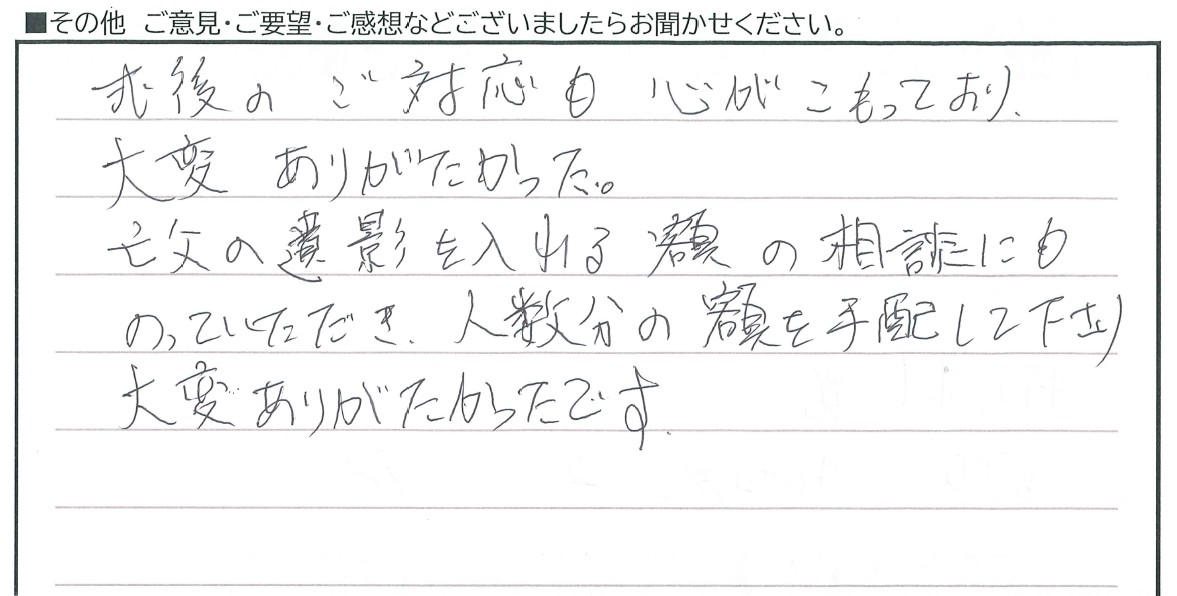 ■その他 ご意見・ご要望・ご感想などございましたらお聞かせください。
式後のご対応も心がこもっており、
大変ありがたかった。
亡父の遺影を入れる額の相談にも
のっていただき、人数分の額を手配して下さり
大変ありがたかったです。